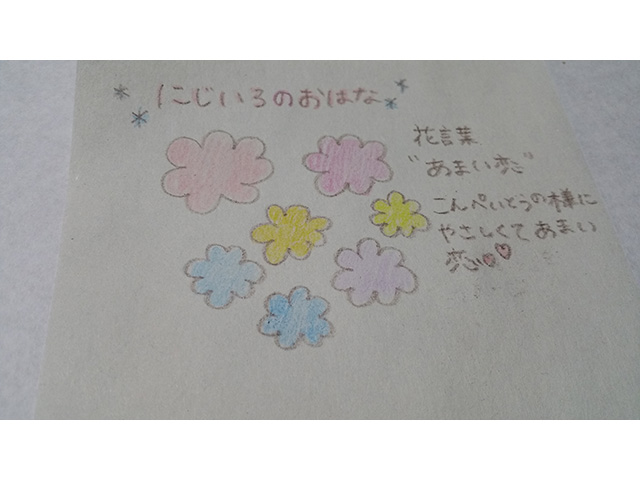 にじいろのおはな
花言葉
"あまい恋"
こんぺいとうの様に
やさしくてあまい
恋